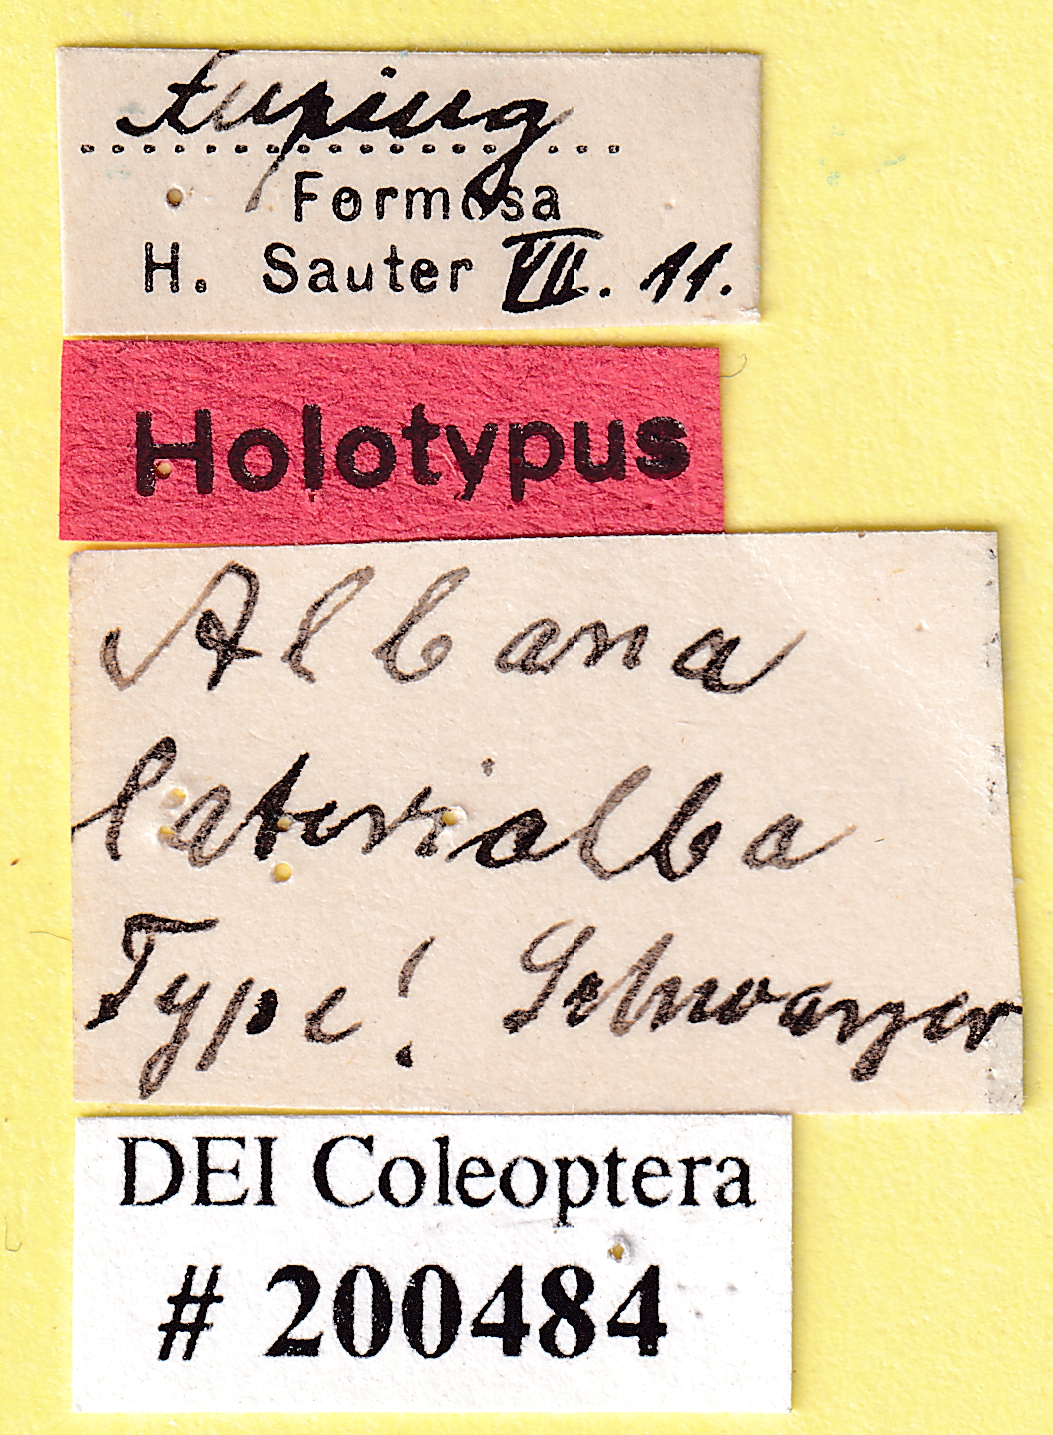 Anping
Formosa
H. Sauter VII. 11.
Holotypus
Albana
laterialba
Type! Schwarzer
DEI Coleoptera
# 200484